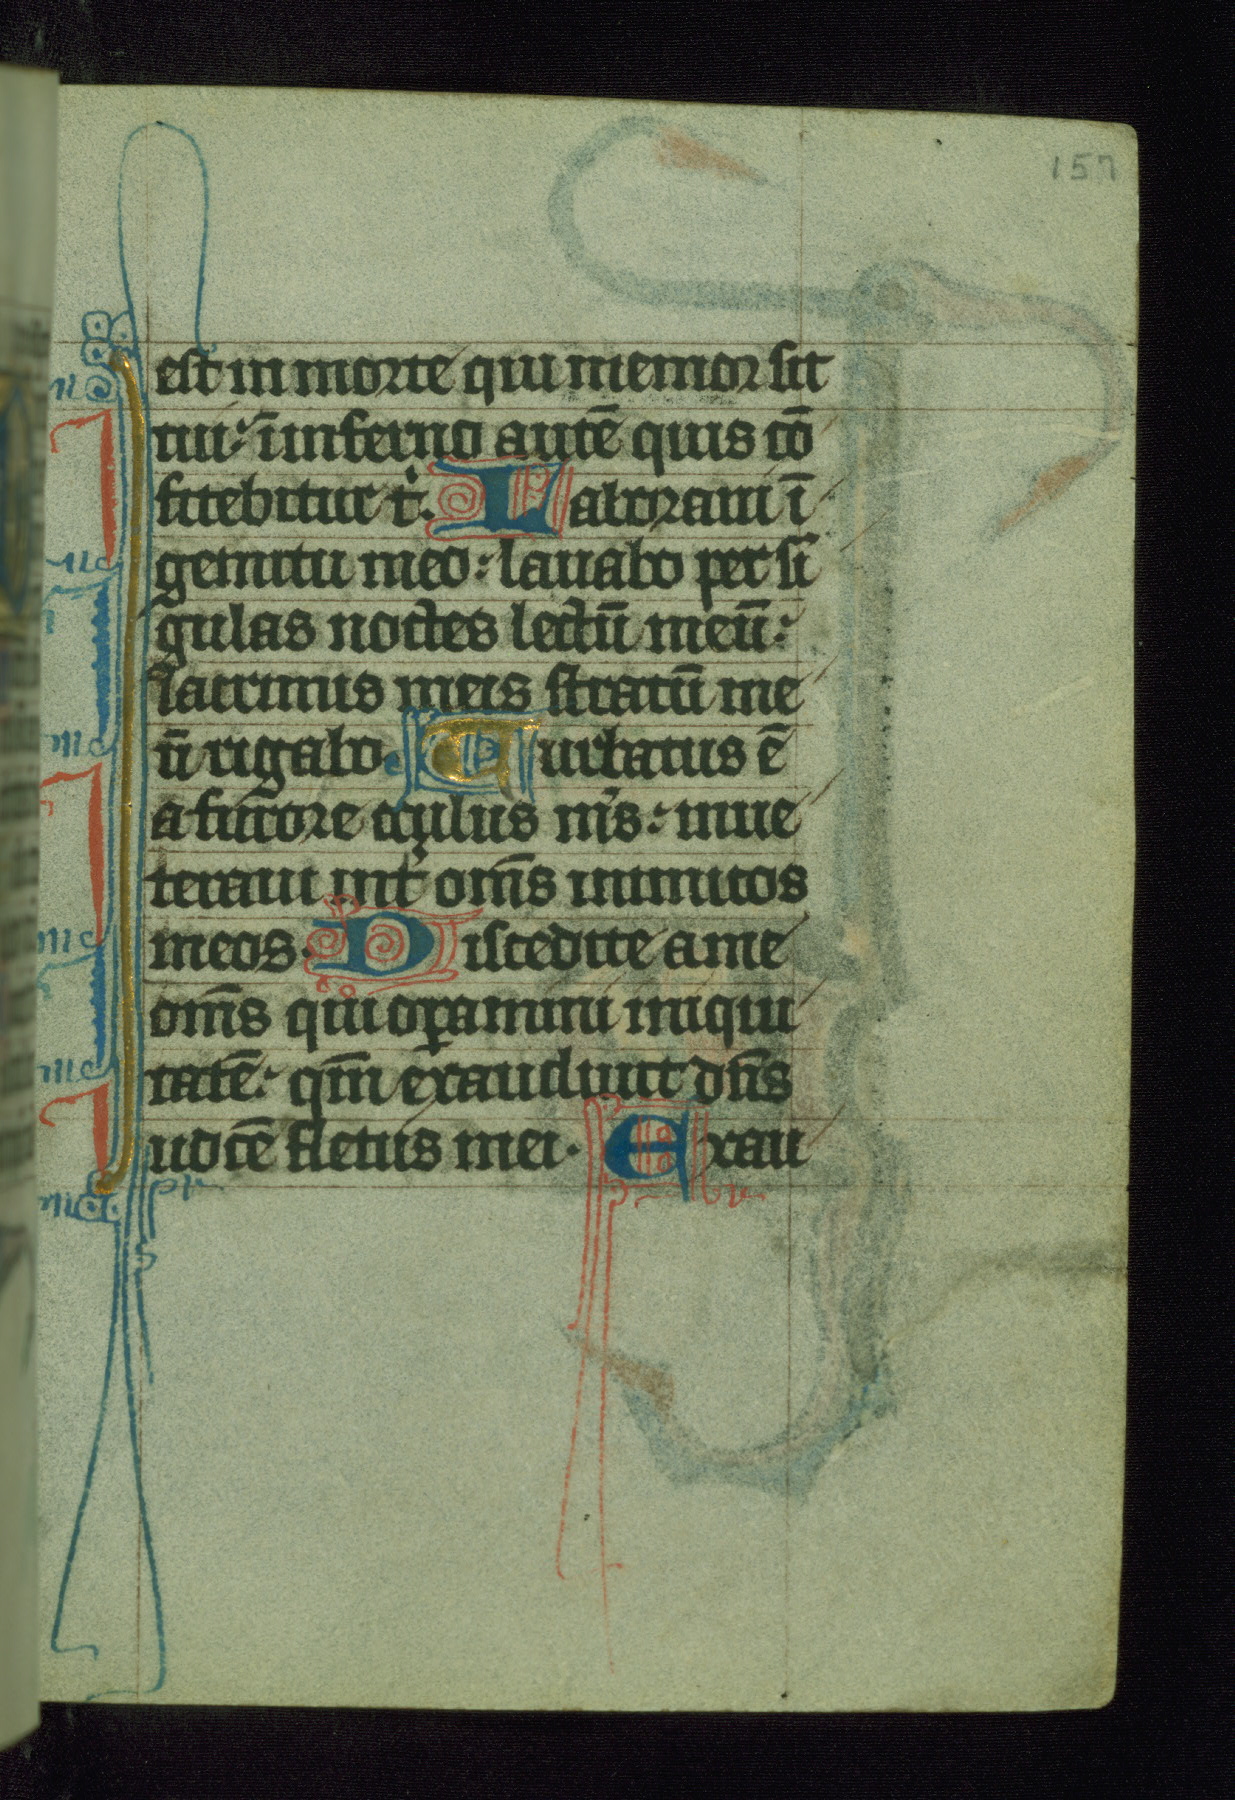 157
est in morte qui memor sit
tui: ī inferno autē quis cō
fitebitur t̾. Laboraui ī
gemitu meo: lauabo per sī
gulas noctes lectū meū:
lacrimis meis stratū me
ū rigabo. Turbatus ē
a furore oculus m̾s: inue
teraui int̾ om̄s inimicos
meos. Discedite a me
om̄s qui oꝑamini iniqui
tatē: qm̄ exaudiuit dn̄s
uocē fletus mei. Exau